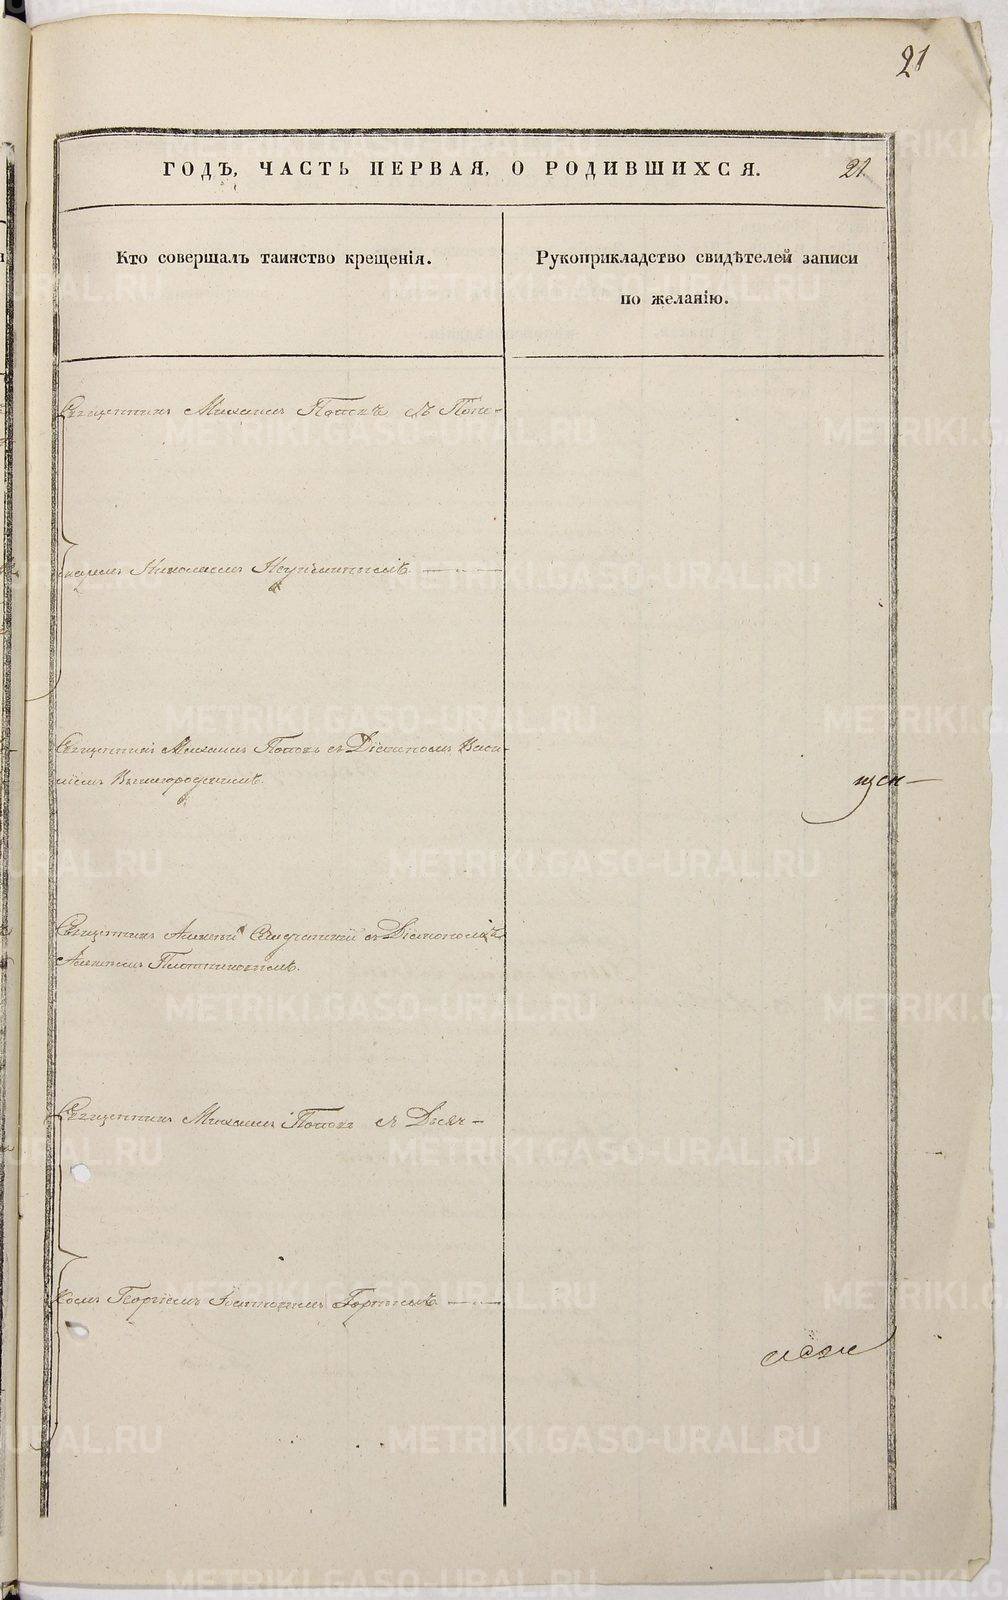 21
ГОДЪ, ЧАСТЬ ПЕРВАЯ, О РОДИВШИХСЯ.
21.
Кто совершалъ таинство крещенія.
Рукоприкладство свидѣтелей записи
по желанію.
Священникъ Михаилъ Поповъ съ Поно-
маремъ Николаемъ
Священникъ Михаилъ Поповъ съ Діакономъ Васи-
ліемъ Вышегородскимъ.
Священникъ Алексѣй съ Діакономъ
Плотниковымъ.
Священникъ Михаилъ Поповъ съ Дьяч-
комъ Георгіемъ
METRIKI.GASO-URAL.RU